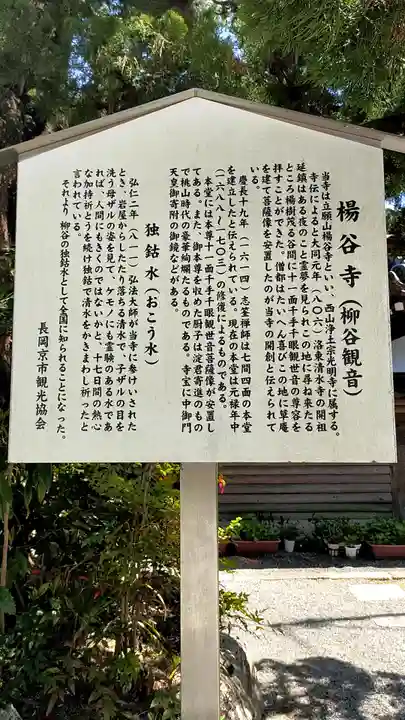 楊谷寺(柳谷観音)
当寺は立願山楊谷寺といい、西山浄土宗光明寺に属する。
寺伝によると大同元年(八〇六)洛東清水寺の開祖
延鎮はある夜のこと霊夢を見られこの地に尋ね来たる
ところ楊樹茂る谷間に十一面千手千眼観世音の尊容を
拝すことができた。僧都はたいへん喜びこの地に草庵
を建て菩薩像を安置したのが当寺の開創と伝えられて
いる。
慶長十九年(一六一四)志筌禅師は七間四面の本堂
を建立したと伝えられている。現在の本堂は元禄年中
(一六八八~一七〇三)の修復によるものである。
本堂には本尊十一面千手千眼観世音菩薩像が安置し
てある。また御本尊を収めた厨子は淀君寄進のもの
で桃山時代の豪華絢爛たるものである。寺宝に中御門
天皇御寄附の御鏡などがある。
独鈷水(おこう水)
弘仁二年(八一一)弘法大師が当寺に参けいされた
とき、岩屋からしたたり落ちる清水で、子ザルの目を
洗う母ザルの姿を見てケモノにも霊験のある水であ
れば、人間にも効くのではないかと、十七日間の熱心
な加持祈とうを続け独鈷で清水をかきまわし祈ったと
言われている。
それより、柳谷の独鈷水として全国に知られることになった。
長岡京市観光協会